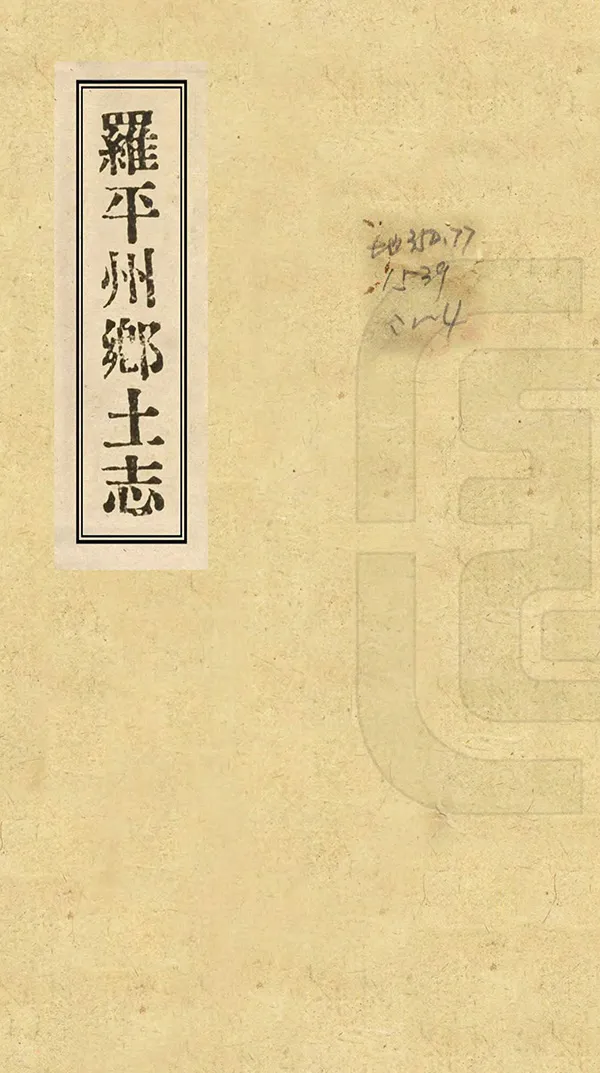 羅平州鄉土志
地350.77
1539
:1~4